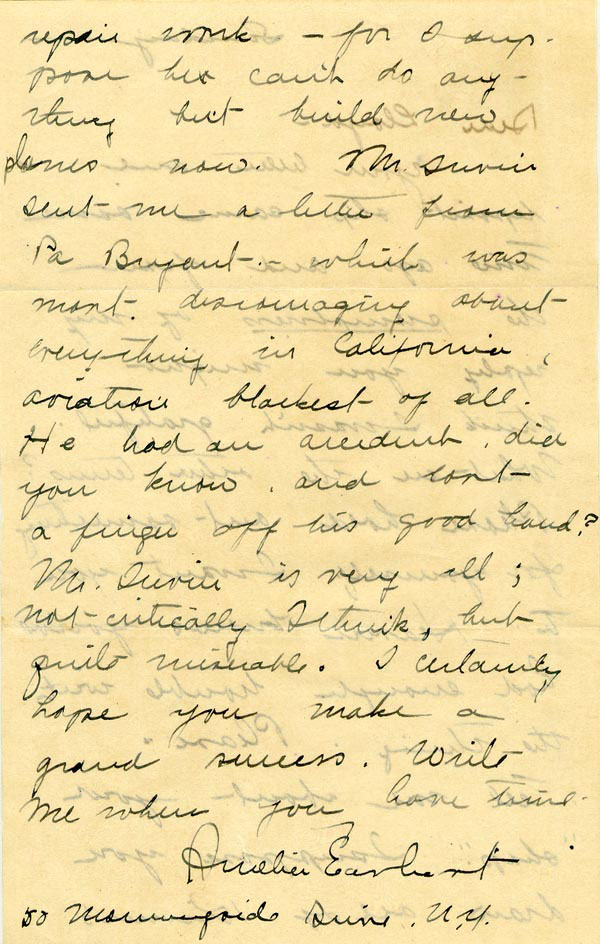 repair work – for I sup-
pose he can't do any-
thing but build new
planes now. Mr.
sent me a letter from
Pa Bryant – which was
most discouraging about
everything in California,
aviation blackest of all.
He had an accident, did
you know, and lost
a finger off his good hand?
Mr. is very ill;
not critically I think, but
quite miserable. I certainly
hope you make a
grand success. Write
me when you have time.
Amelia Earhart
50 Morningside Drive, N.Y.